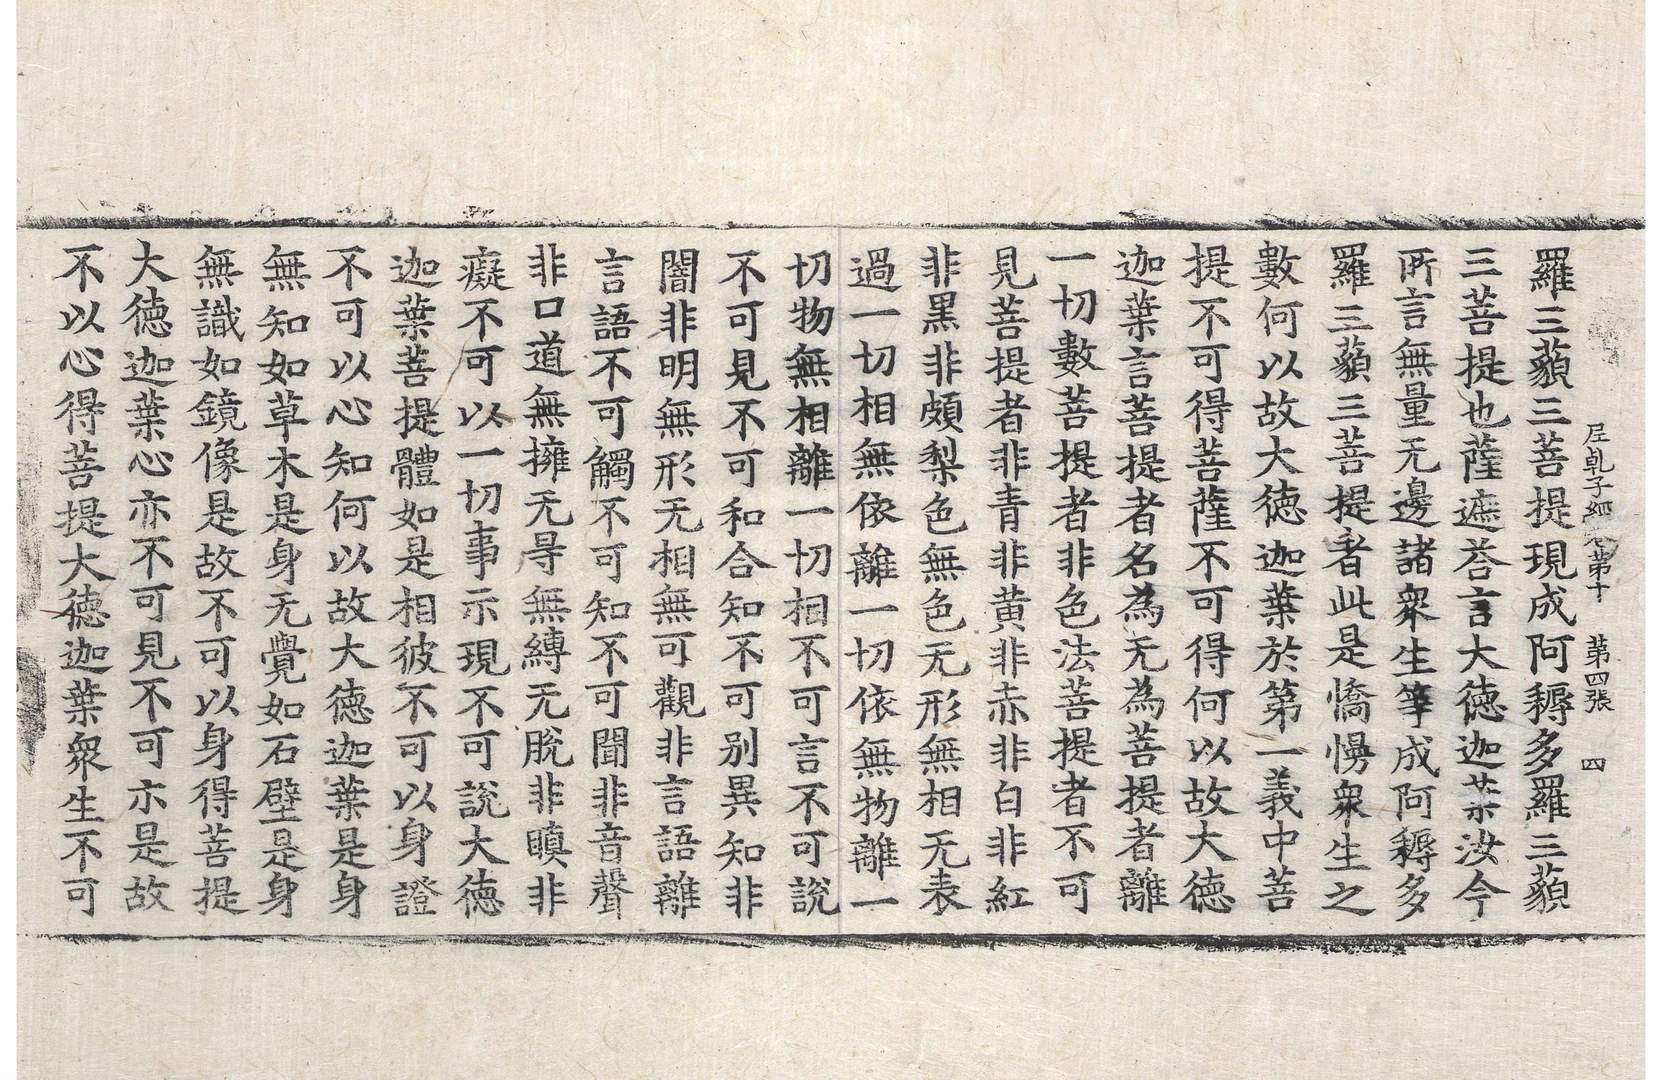 尼乹子經卷第十 第四張 四
羅三藐三菩提現成阿耨多羅三藐
三菩提也薩遮荅言大德迦葉汝今
所言無量无邊諸衆生等成阿耨多
羅三藐三菩提者此是憍慢衆生之
數何以故大德迦葉於第一義中菩
提不可得菩薩不可得何以故大德
迦葉言菩提者名為无為菩提者離
一切數菩提者非色法菩提者不可
見菩提者非青非黄非赤非白非紅
非黒非頗梨色無色无形無相无表
過一切相無依離一切依無物離一
切物無相離一切相不可言不可說
不可見不可和合知不可別異知非
闇非明無形无相無可觀非言語離
言語不可觸不可知不可聞非音聲
非口道無擁无㝵無縛无脫非瞋非
癡不可以一切事示現不可說大德
迦葉菩提體如是相彼不可以身證
不可以心知何以故大德迦葉是身
無知如草木是身无覺如石壁是身
無識如鏡像是故不可以身得菩提
大德迦葉心亦不可見不可示是故
不以心得菩提大德迦葉衆生不可